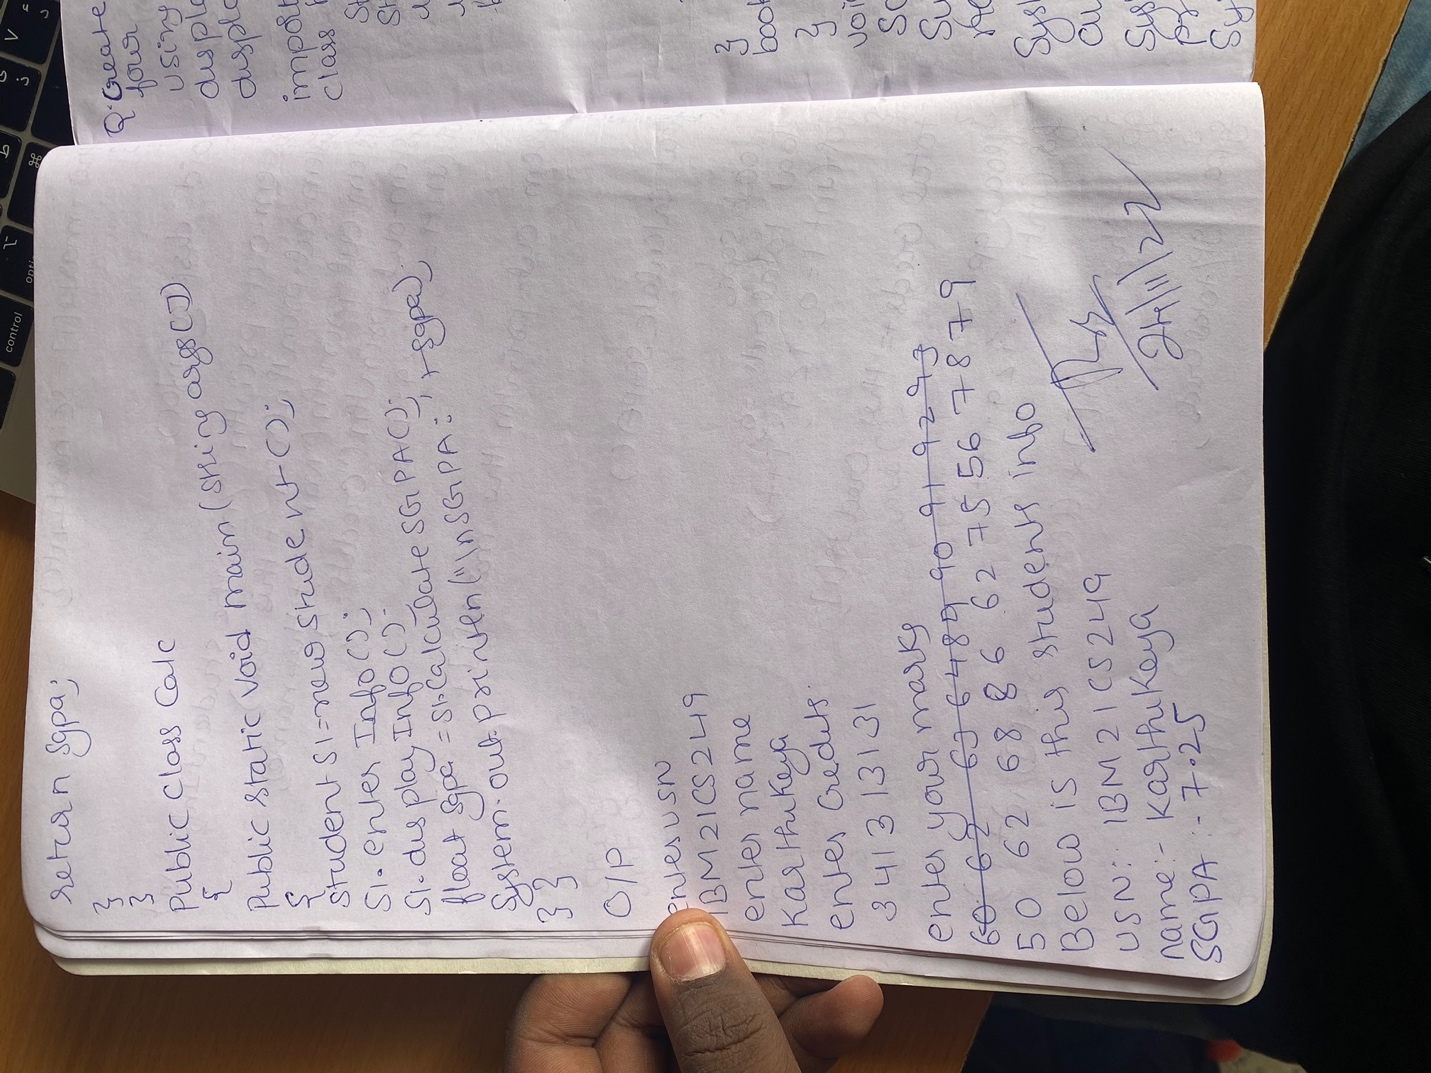 return sgpa;
}
}
public class Calc
{
public static void main(String args[])
{
student S1=new student();
S1.enter Info();
S1.display Info();
float sgpa = S1.calculate SGPA();
System.out.println("\nSGPA:", +sgpa);
}}
O/P
enter USN
1BM21CS249
enter name
Karthikeya
enter credits.
3 4 1 3 1 3 1 3 1
enter your marks
50 62 68 86 62 75 56 78 79
Below is this students info
USN:: 1BM21CS249
name:- Karthikeya
SGPA:-7.25
24/11/22
Q. Create
four
using
displ
displ
impor
class
}
boo
}
voi
Sys
Sys
Sy
control
opti
⌘
⌥